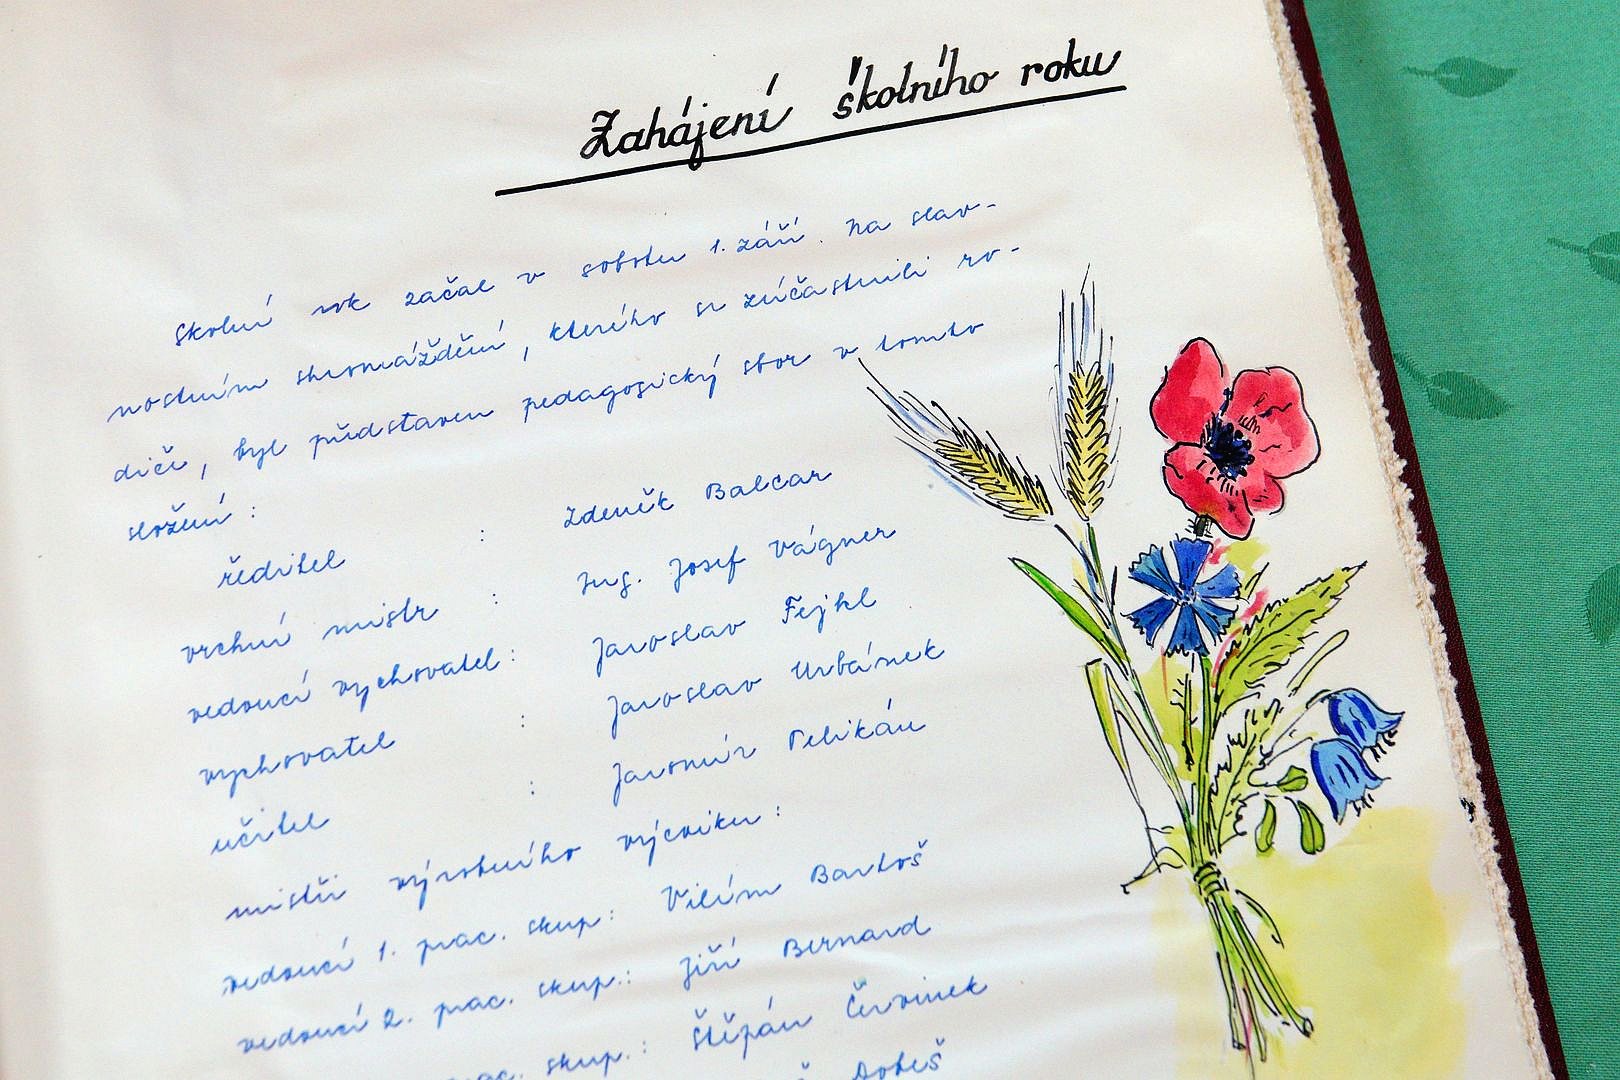 Zahájení školního roku
Školní rok začal v sobotu 1. září. Na slav-
nostním shromáždění, kterého se zúčastnili ro-
diče, byl představen pedagogický sbor v tomto
složení:
ředitel : Zdeněk Balcar
vrchní mistr : Ing. Josef Vágner
vedoucí vychovatel: Jaroslav Fejkl
vychovatel : Jaroslav Urbánek
učitel : Jaromír Pelikán
mistři výrobního výcviku:
vedoucí 1. prac. skup.: Vilém Bartoš
vedoucí 2. prac. skup.: Jiří Bernard
prac. skup.: Štěpán Červinek